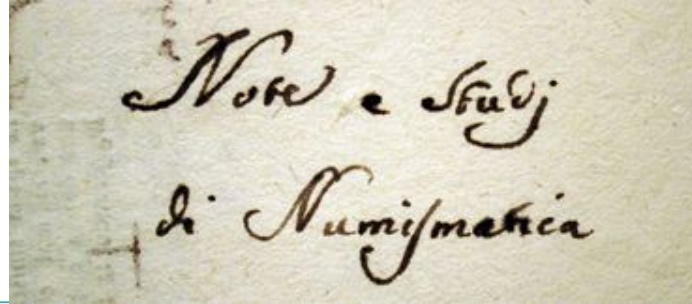 Note e Studj
di Numiſmatica